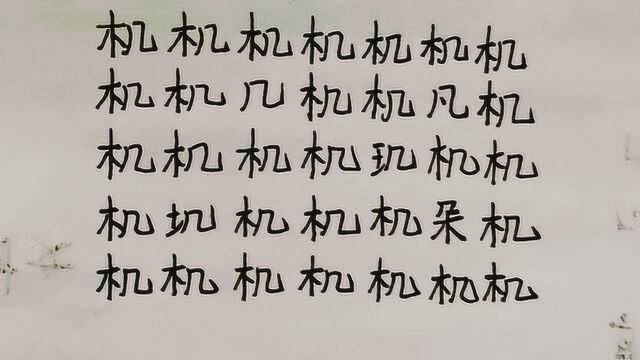 机机机机机机机
机机几机机凡机
机机机机玑机机
机机机机朵机
机机机机机机机